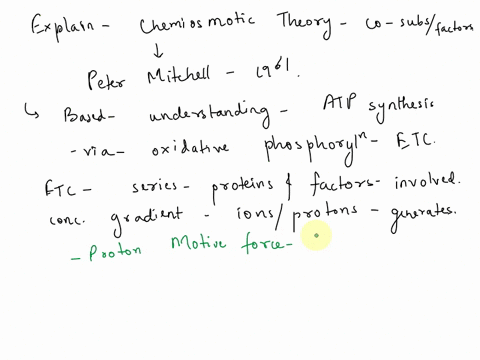 Explain - Chemiosmotic Theory - co-subs/factors
↓
Peter Mitchell - 1961.
↳ Based - understanding - ATP synthesis
- via - oxidative phosphorylⁿ - ETC.
ETC - series - proteins & factors - involved.
conc. gradient - ions/protons - generates.
- Prooton Motive force -